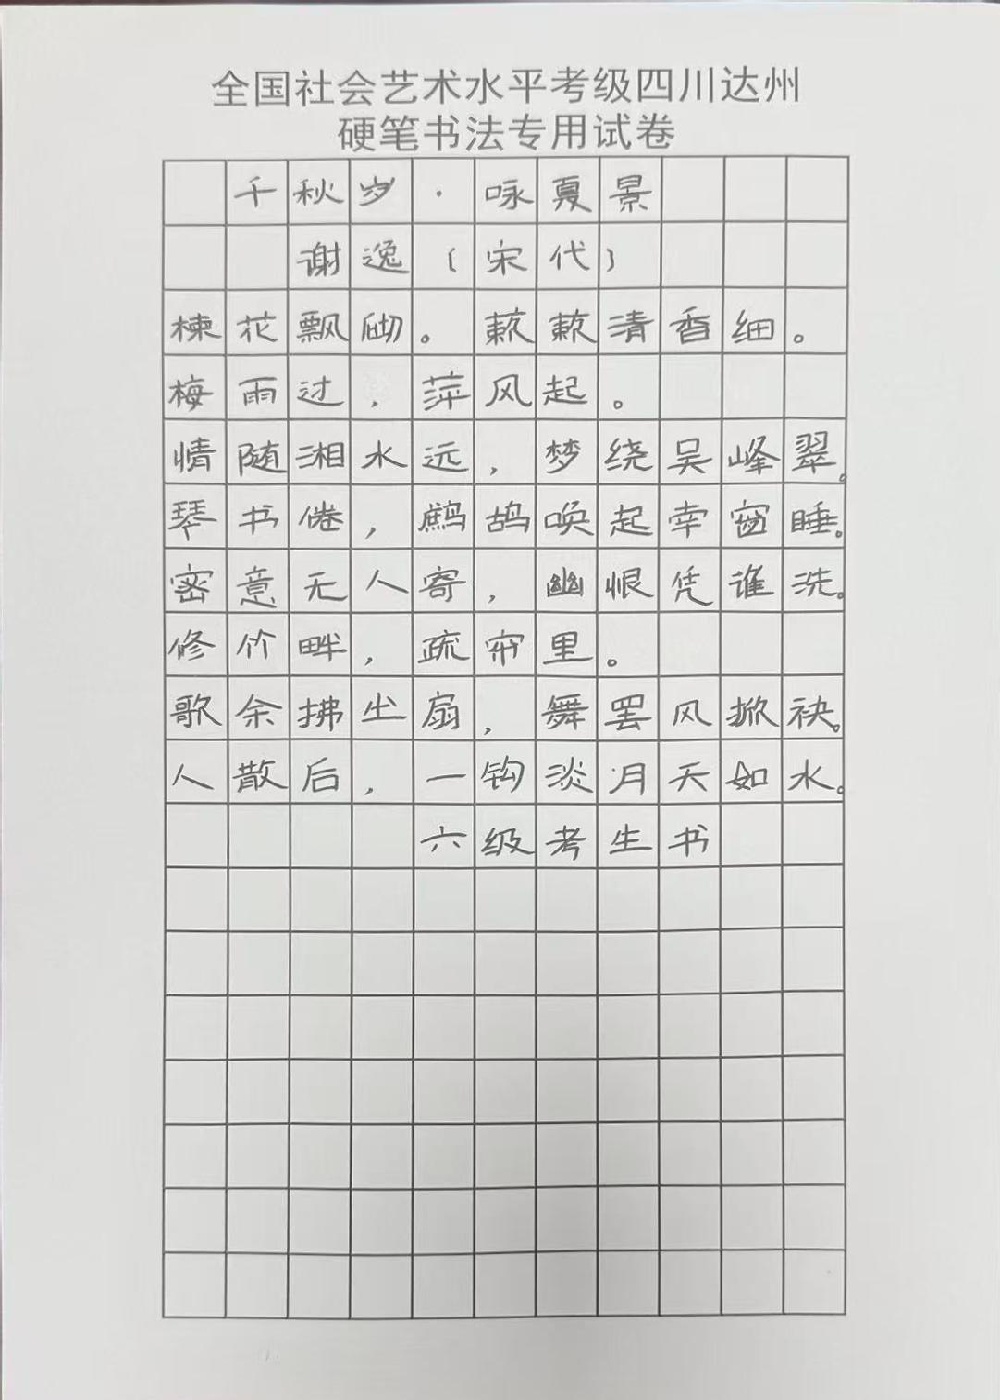 全国社会艺术水平考级四川达州
硬笔书法专用试卷
千秋岁·咏夏景
谢逸(宋代)
楝花飘砌。蔌蔌清香细。
梅雨过,萍风起。
情随湘水远,梦绕吴峰翠。
琴书倦,鹧鸪唤起南窗睡。
密意无人寄,幽恨凭谁洗。
修竹畔,疏帘里。
歌余拂尘扇,舞罢风掀袂。
人散后,一钩淡月天如水。
六级考生书